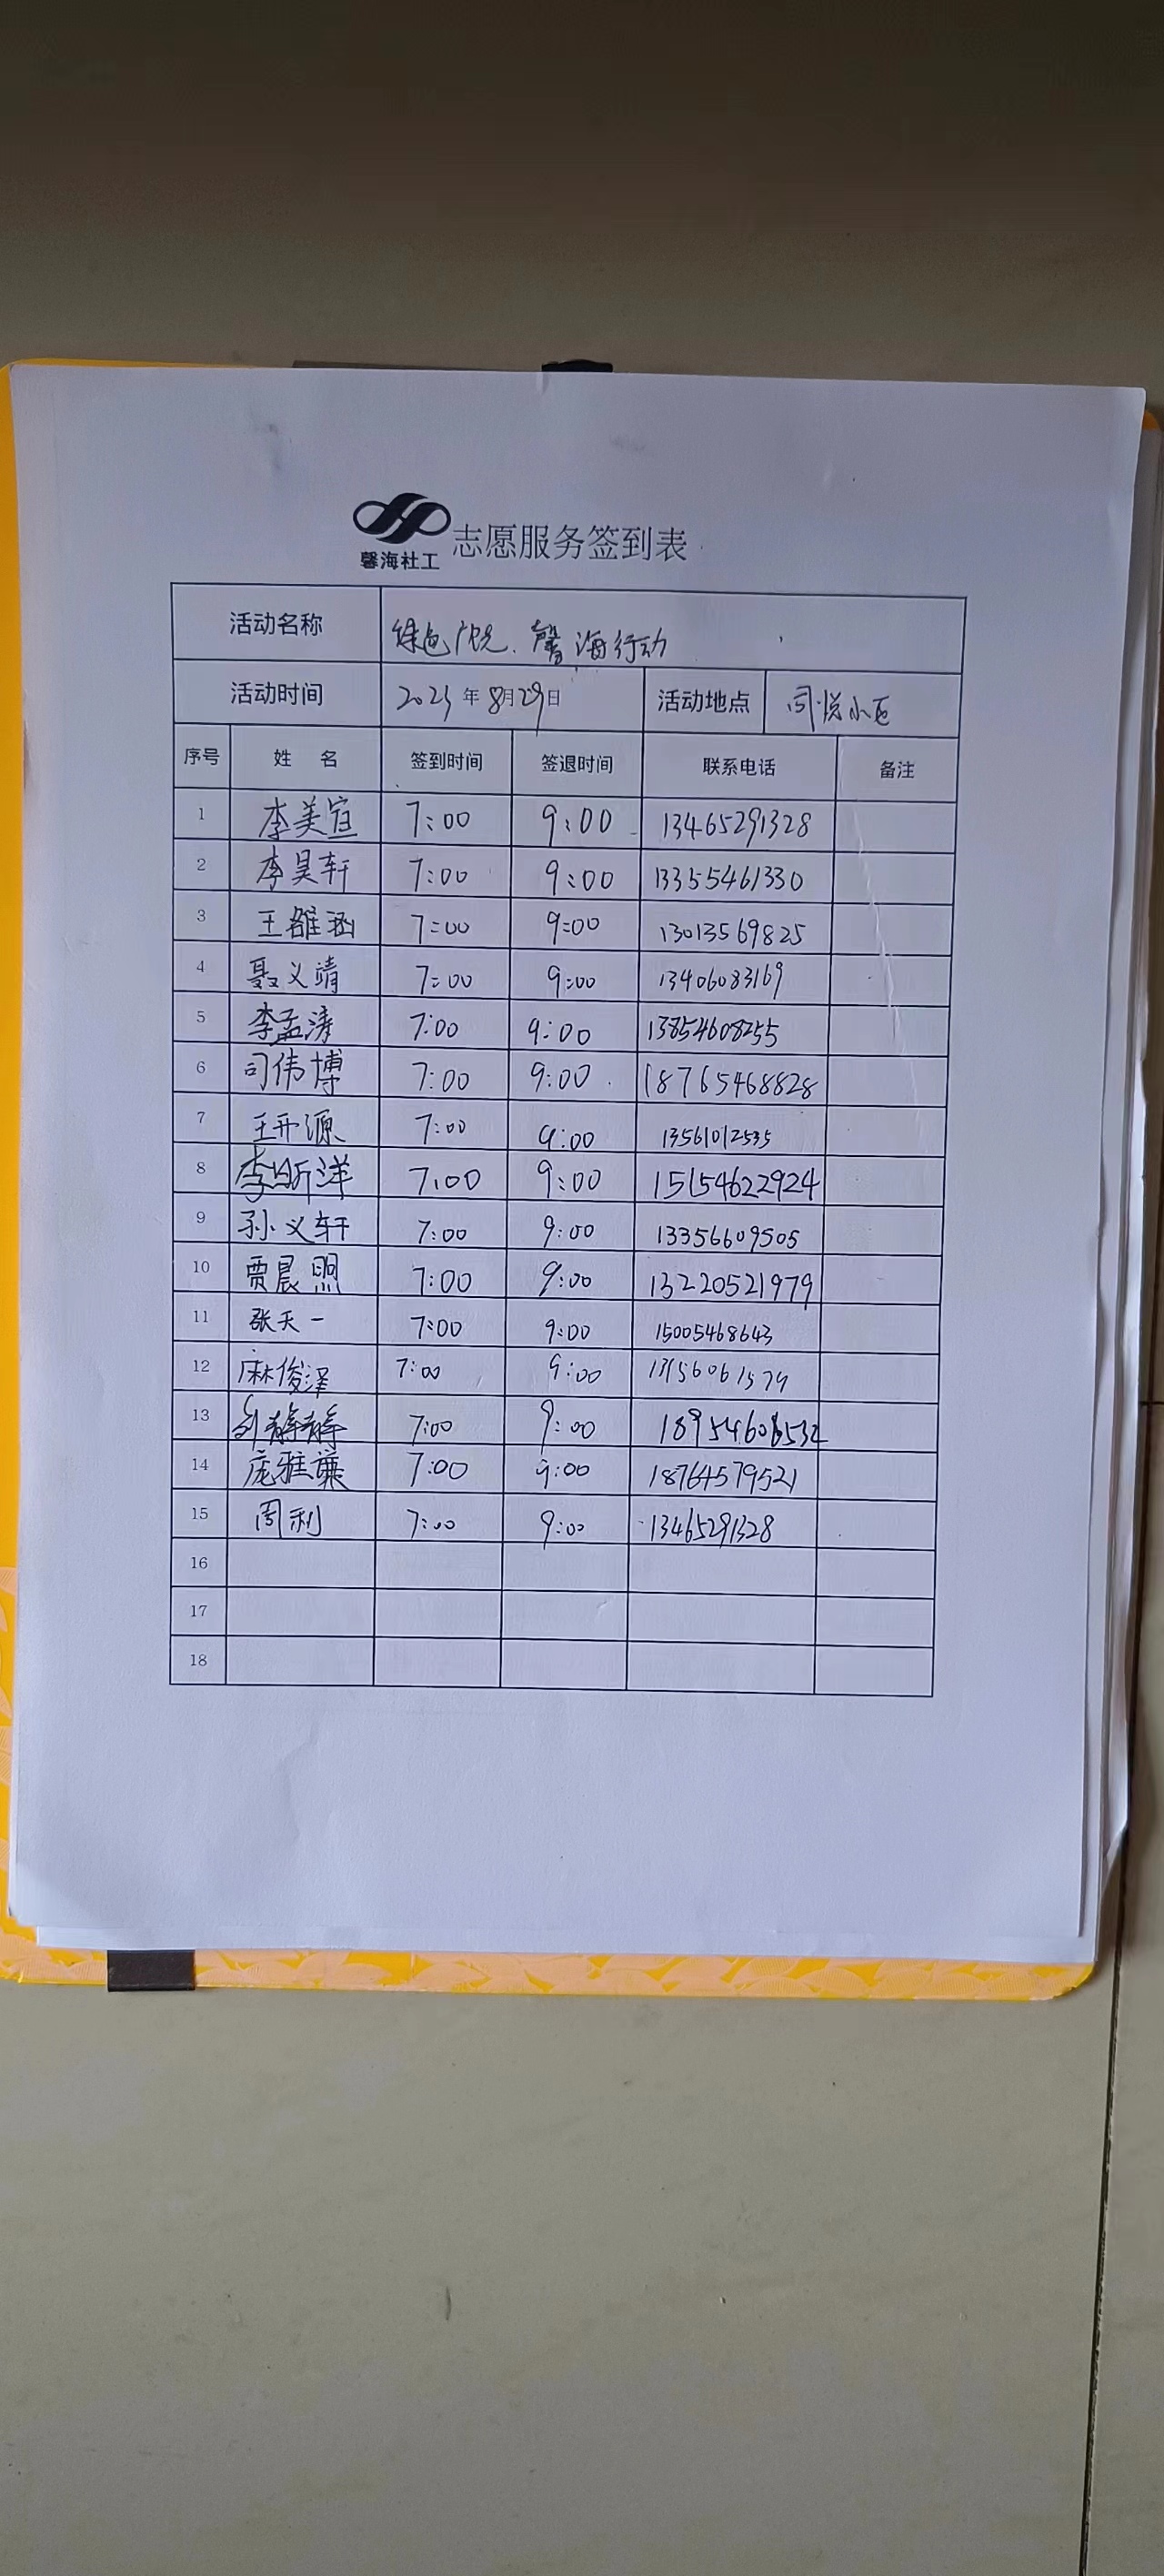 馨海社工 志愿服务签到表
活动名称 绿色广饶、馨海行动
活动时间 2023年8月29日 活动地点 同悦小区
序号 姓 名 签到时间 签退时间 联系电话 备注
1 李美宣 7:00 9:00 13465291328
2 李昊轩 7:00 9:00 13355461330
3 王雒涵 7:00 9:00 13013569825
4 聂义靖 7:00 9:00 13406083169
5 李孟涛 7:00 9:00 13854608255
6 司伟博 7:00 9:00 18765468828
7 王开源 7:00 9:00 13561012535
8 李昕洋 7:00 9:00 15154622924
9 孙义轩 7:00 9:00 13356609505
10 贾晨照 7:00 9:00 13220521979
11 张天一 7:00 9:00 15005468643
12 麻俊泽 7:00 9:00
13 7:00 9:00
14 庞雅 7:00 9:00 18764579521
15 周利 7:00 9:00 13465291328
16
17
18